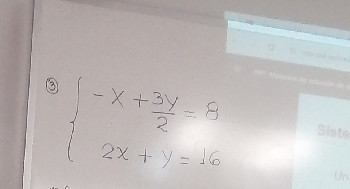 ③ { -x + 3y/2 = 8
2x + y = 16
Siste
Un